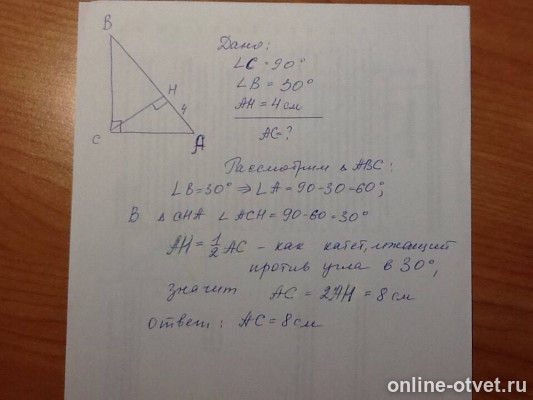 B
H
4
C
A
Дано:
∠C = 90°
∠B = 30°
AH = 4 см
AC = ?
Рассмотрим △ ABC:
∠B = 30° ⇒ ∠A = 90 - 30 = 60°;
В △ CHA ∠ ACH = 90 - 60 = 30°
AH = 1/2 AC - как катет, лежащий
против угла в 30°,
значит AC = 2AH = 8 см
ответ: AC = 8 см
online-otvet.ru